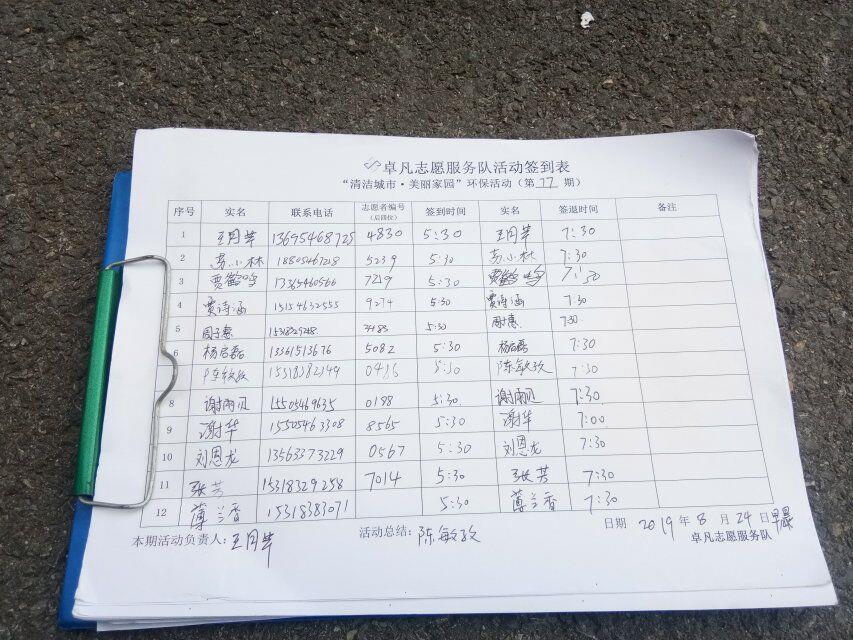 卓凡志愿服务队活动签到表
“清洁城市·美丽家园”环保活动（第 77 期）
序号 实名 联系电话 志愿者编号（后四位） 签到时间 实名 签退时间 备注
1 13695468725 4830 5:30 7:30
2 苏小林 18805467218 5239 5:30 苏小林 7:30
3 贾鹤鸣 17365460566 7219 5:30 贾鹤鸣 7:30
4 贾诗涵 15154632555 9274 5:30 贾诗涵 7:30
5 周子惠 5:30 周子惠 7:30
6 杨启磊 13361513676 5082 5:30 杨启磊 7:30
陈敏孜 15318382149 5:30 陈敏孜 7:30
8 谢雨贝 15505469635 0188 5:30 谢雨贝 7:30
9 谢华 15505463308 8565 5:30 谢华 7:00
10 刘恩龙 13563373229 0567 5:30 刘恩龙 7:30
11 张芳 15318329258 7014 5:30 张芳 7:30
12 薄兰香 15318383071 5:30 薄兰香 7:30
日期 2019 年 8 月 24 日 早晨
本期活动负责人： 活动总结：陈敏孜 卓凡志愿服务队